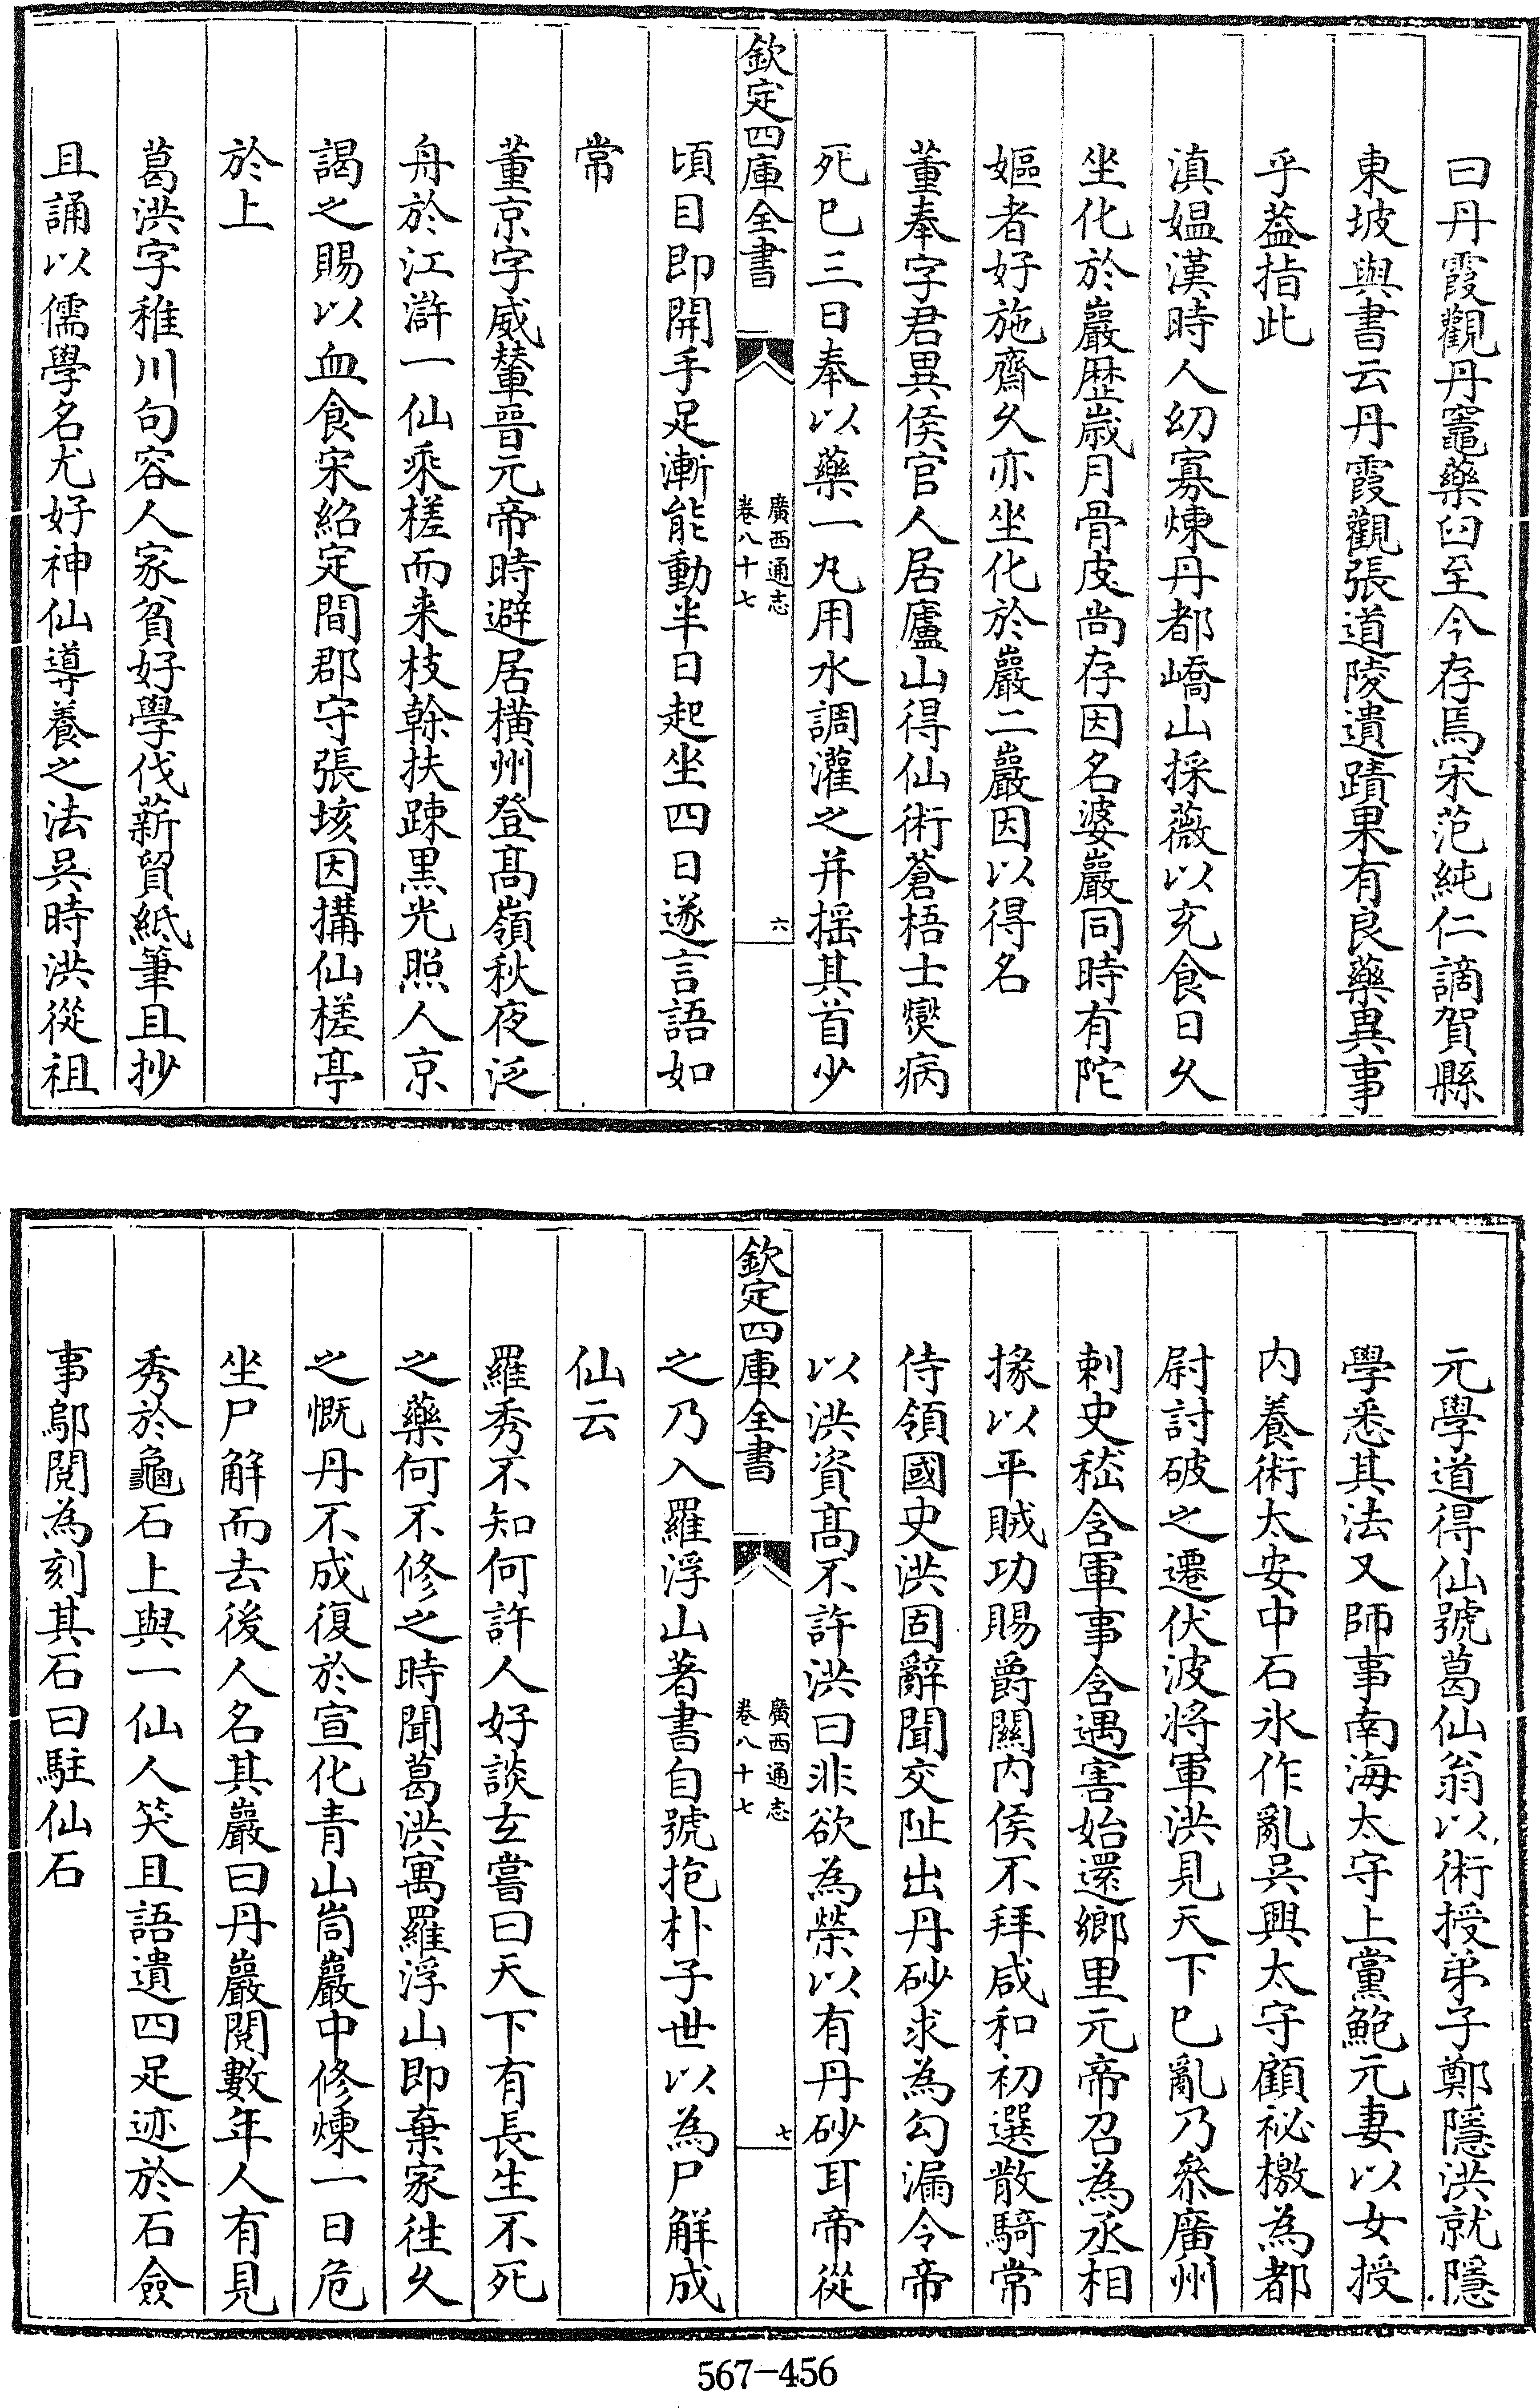 曰丹霞觀丹竈藥臼至今存焉宋范純仁謫賀縣
東坡與書云丹霞觀張道陵遺蹟果有良藥異事
乎葢指此
滇媼漢時人幼寡煉丹都嶠山採薇以充食日乆
坐化於巖歴歳月骨皮尚存因名婆巖同時有陀
嫗者好施齋乆亦坐化於巖二巖因以得名
董奉字君異侯官人居廬山得仙術蒼梧士爕病
死巳三日奉以藥一丸用水調灌之并揺其首少
欽定四庫全書
廣西通志
卷八十七
六
頃目即開手足漸能動半日起坐四日遂言語如
常
董京字威輦晉元帝時避居横州登髙嶺秋夜泛
舟於江滸一仙乘槎而来枝榦扶踈黒光照人京
謁之賜以血食宋紹定間郡守張垓因搆仙槎亭
於上
葛洪字稚川句容人家貧好學伐薪貿紙筆且抄
且誦以儒學名尤好神仙導養之法吳時洪從祖
元學道得仙號葛仙翁以術授弟子鄭隱洪就隱
學悉其法又師事南海太守上黨鮑元妻以女授
内養術太安中石氷作亂吳興太守顧祕檄為都
尉討破之遷伏波將軍洪見天下巳亂乃叅廣州
刺史嵇含軍事含遇害始還鄉里元帝召為丞相
掾以平賊功賜爵關内侯不拜咸和初選散騎常
侍領國史洪固辭聞交阯出丹砂求為勾漏令帝
以洪資髙不許洪曰非欲為榮以有丹砂耳帝從
欽定四庫全書
廣西通志
卷八十七
七
之乃入羅浮山著書自號抱朴子世以為尸解成
仙云
羅秀不知何許人好談玄嘗曰天下有長生不死
之藥何不修之時聞葛洪寓羅浮山即棄家往乆
之慨丹不成復於宣化青山峝巖中修煉一日危
坐尸解而去後人名其巖曰丹巖閱數年人有見
秀於龜石上與一仙人笑且語遺四足迹於石僉
事鄔閱為刻其石曰駐仙石
567-456